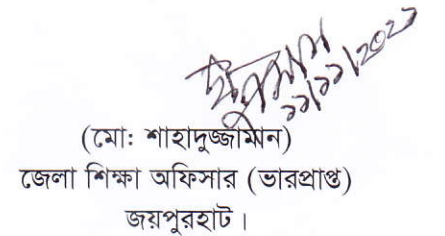 ১১/১১/২০২১
(মো: শাহাদুজ্জামান)
জেলা শিক্ষা অফিসার (ভারপ্রাপ্ত)
জয়পুরহাট।